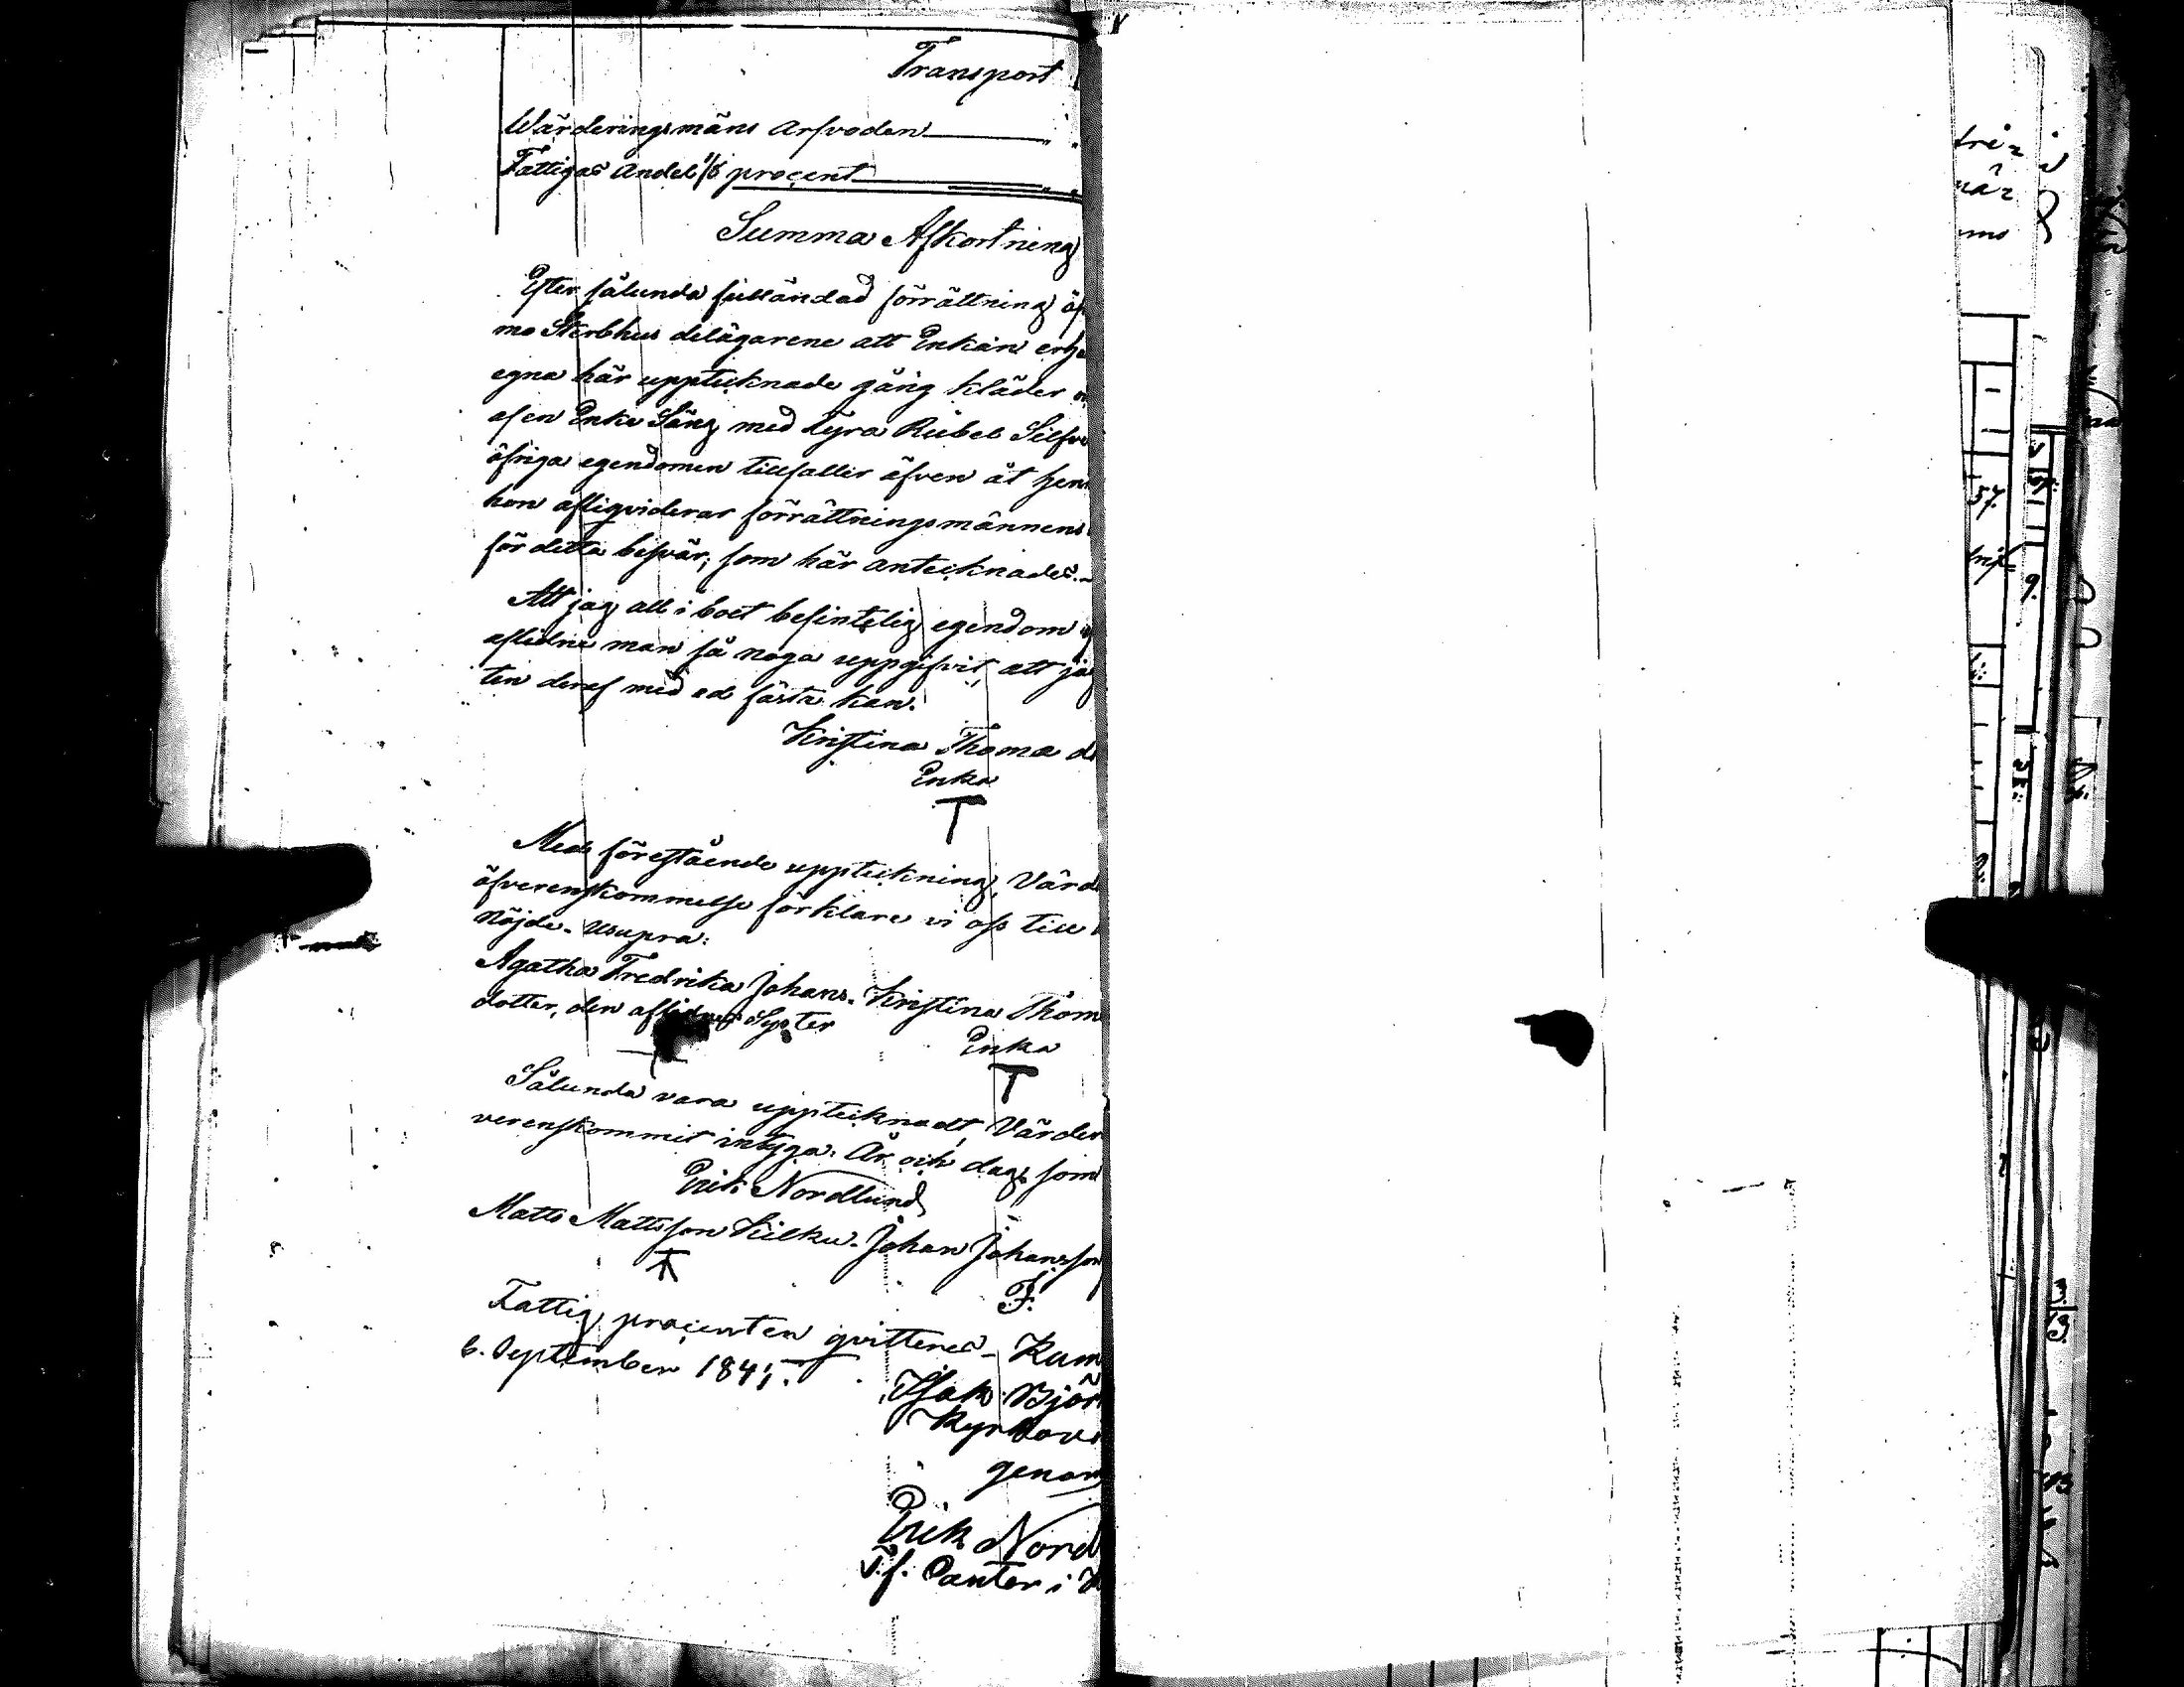 Transport
Wärderingsmäns Arfvoden
Fattigas Andel 1/8 procent
Summa Afkortning
Efter sålunda fulländad förrättning öf
mo Sterbhus delägarene att Enkan erh
egna här upptecknade gång kläder
af en Enke Säng med Fyra Rubel Silfve
öfriga egendomen tillfaller äfven åt hen
hon afliqviderar förrättningsmännens
för detta besvär, som här antecknades.
Att jag all i boet befintelig egendom
aflidne man så noga uppgifvit, att jag
ten deraf med ed fästa kan.
Kristina Thoma d
Enka
T
Med förestående uppteckning, Värd
öfverenskommelse förklare vi oss till
nöjde. Usupra:
Agatha Fredrika Johans- Kristina Thom
dotter, den aflidnes Syster
Enka
T
Sålunda vara upptecknadt, Värder
verenskommit intyga. År och dag, som
Erik Nordlund
Matts Mattsson Kilku. Johan Johansson
F.
Fattig procenten qvitteres. Kum
6. September 1841.
Isak Björ
Kyrkov
genom
Erik Nord
T.f. Cantor i
tre
när
57.
9.